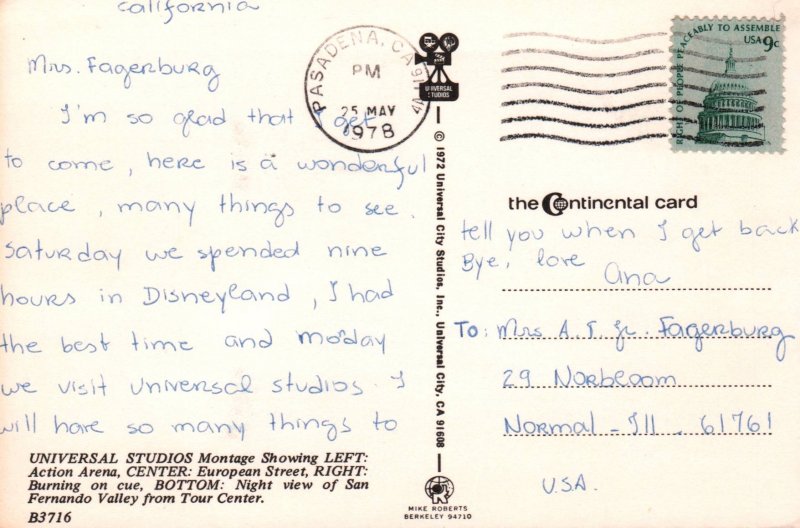 California
Mrs. Fagerburg
I'm so glad that I get
to come, here is a wonderful
place, many things to see.
Saturday we spended nine
hours in Disneyland, I had
the best time and moday
we visit universal studios. I
will hare so many things to
UNIVERSAL STUDIOS Montage Showing LEFT:
Action Arena, CENTER: European Street, RIGHT:
Burning on cue, BOTTOM: Night view of San
Fernando Valley from Tour Center.
B3716
PASADENA, CA 911
PM
25 MAY
1978
UNIVERSAL
STUDIOS
© 1972 Universal City Studios, Inc., Universal City, CA 91608
MIKE ROBERTS
BERKELEY 94710
RIGHT OF PEOPLE PEACEABLY TO ASSEMBLE
USA 9c
the Continental card
tell you when I get back
Bye, love
Ana
To: Mrs A. J. Jr. Fagerburg
29 Norbloom
Normal - Ill. 61761
U.S.A.